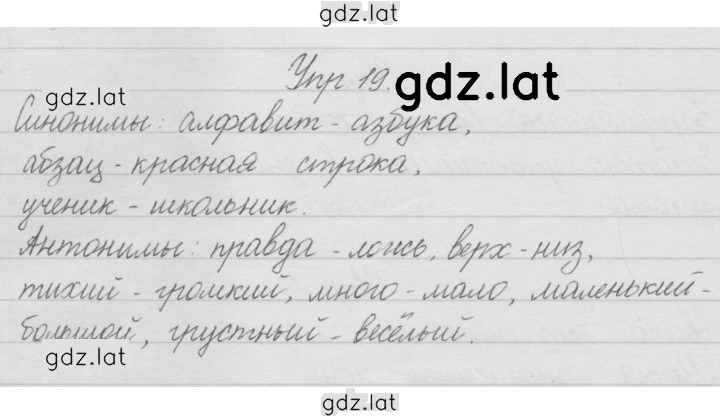 gdz.lat
Упр 19.
gdz.lat
gdz.lat
Синонимы: алфавит - азбука,
абзац - красная строка,
ученик - школьник.
Антонимы: правда - ложь, верх - низ,
тихий - громкий, много - мало, маленький -
большой, грустный - весёлый.
gdz.lat
gdz.lat